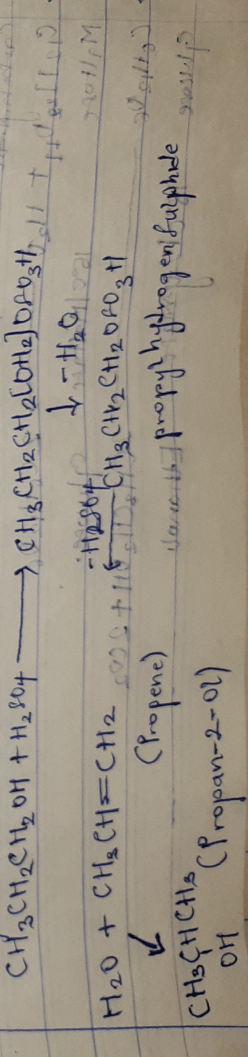 CH3CH2CH2OH + H2SO4 ⟶ CH3CH2CH2[OH2]OSO3H
↓ -H2O
-H2SO4
H2O + CH3CH=CH2 ⟵ CH3CH2CH2OSO3H
(Propene) propylhydrogensulphide
↙
CH3CHCH3 (Propan-2-Ol)
OH